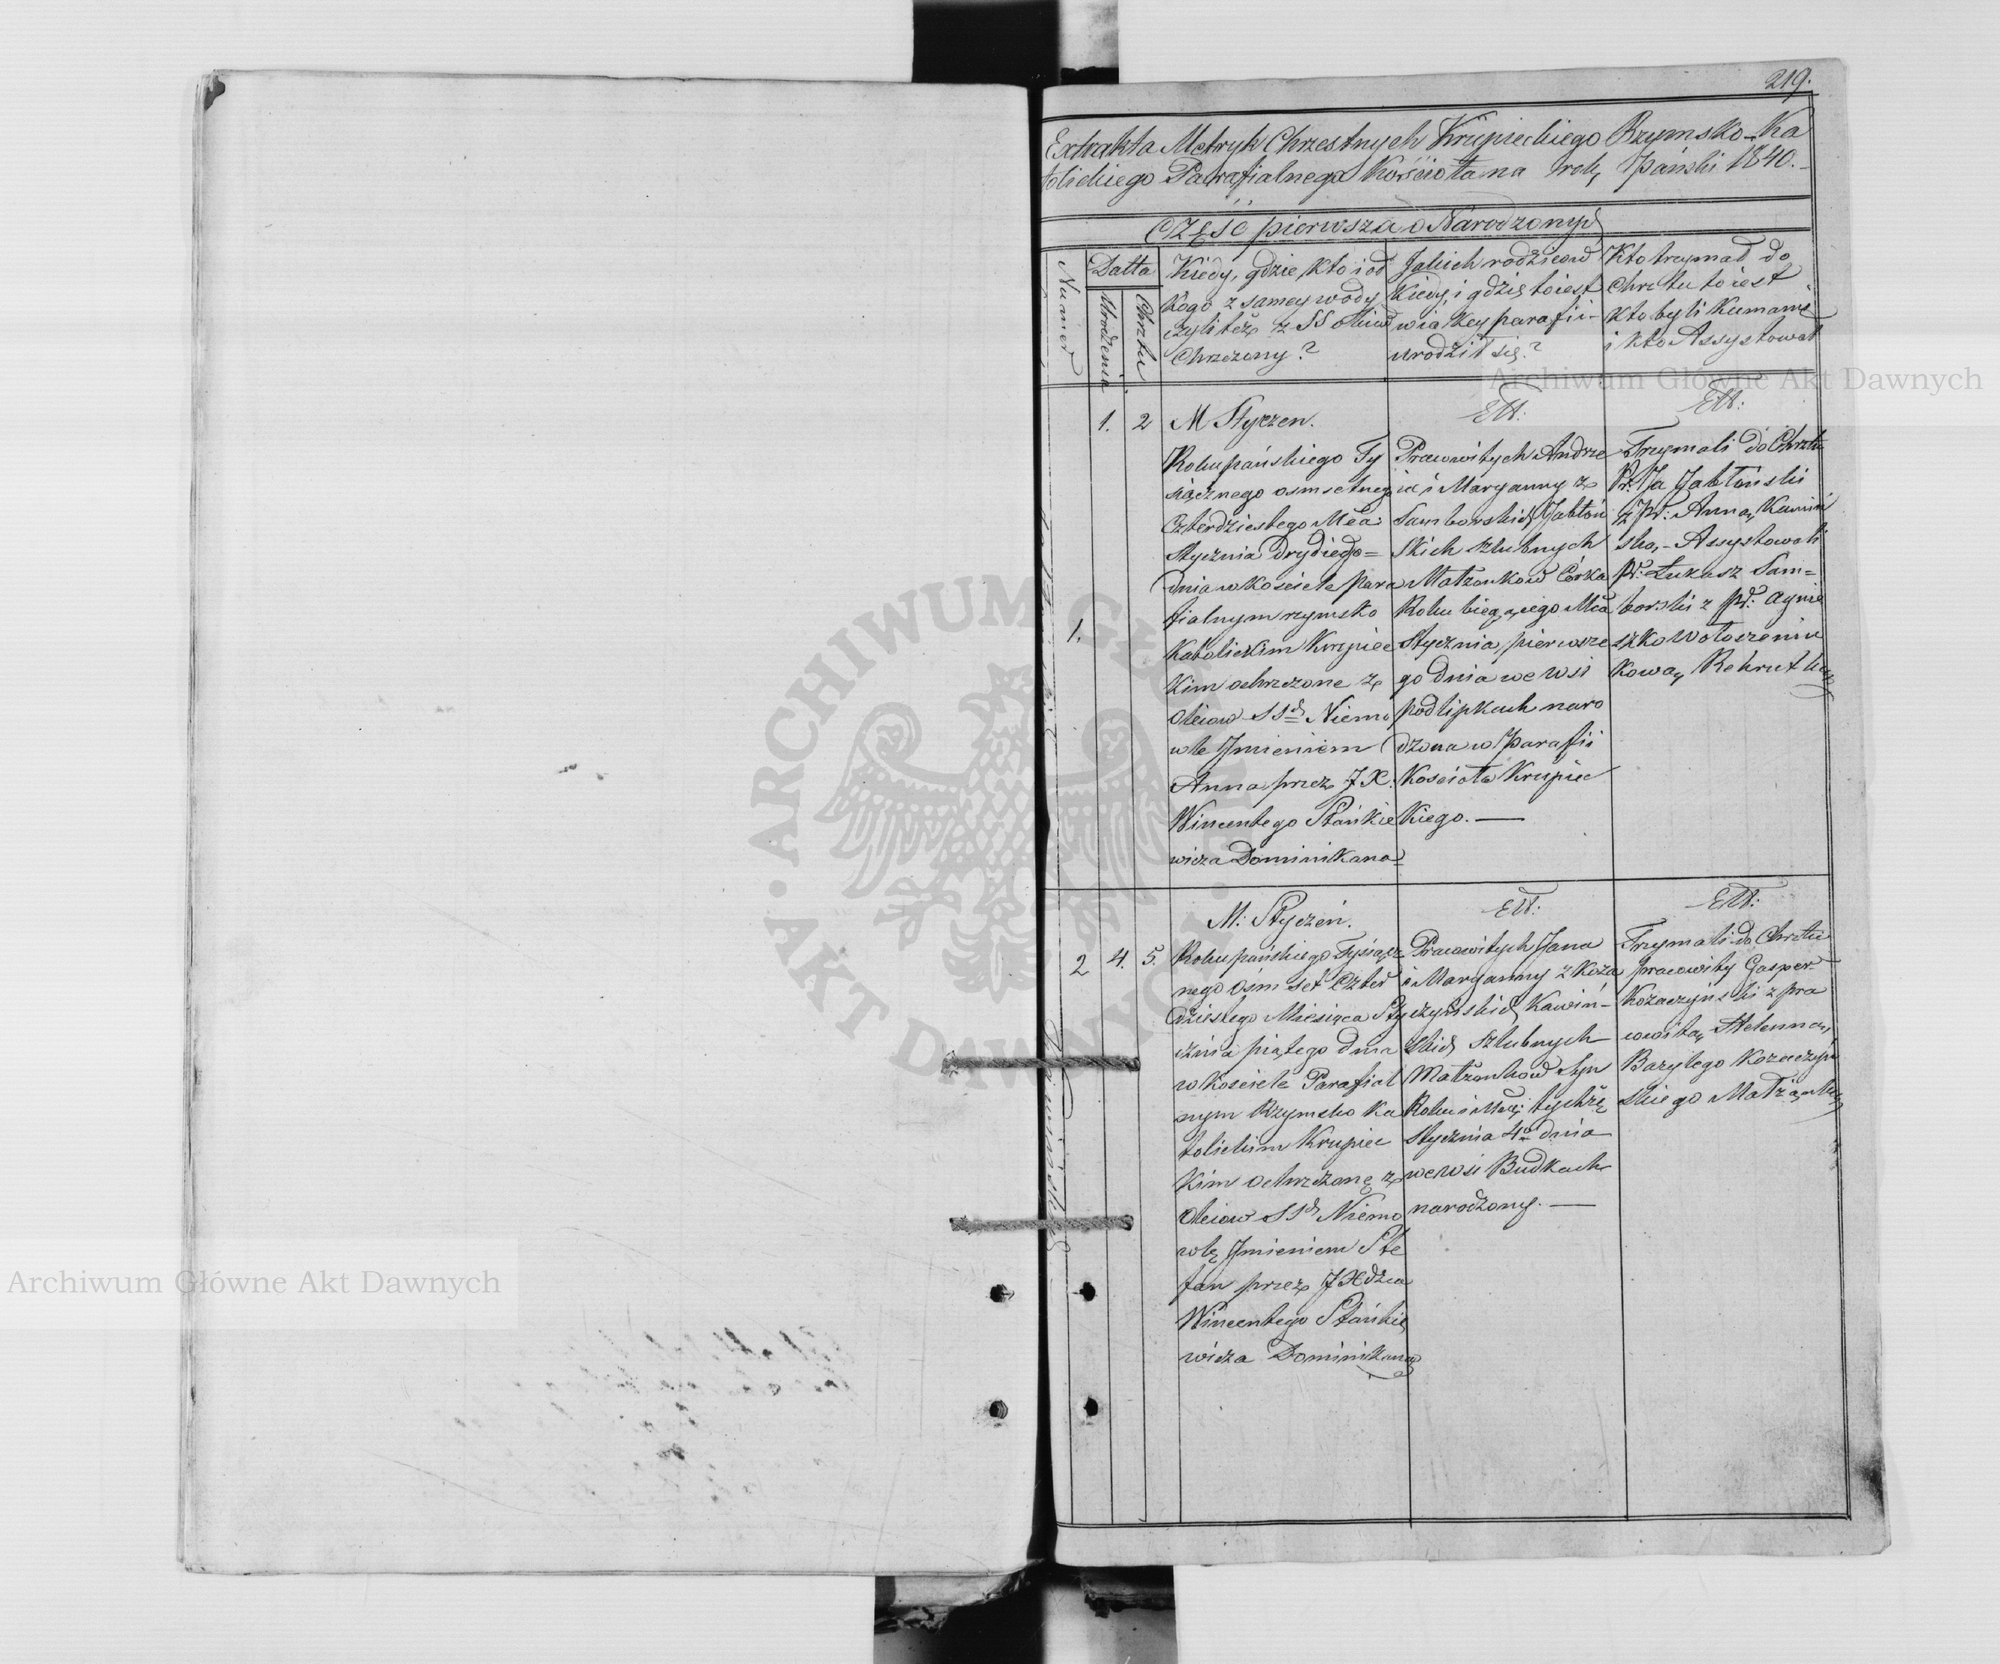 219.
Extrakta Metryk Chrzestnych Krupieckiego Rzymsko-Ka
tolickiego Parafialnego Kościoła na rok Pański 1840.
Część pierwsza o Narodzonych
Numer
Datta
Urodzenia
Chrztu
Kiedy, gdzie, kto i od
kogo z samey wody
czyli też z SS oliow
Chrzczony?
Jakich rodziców
Kiedy, i gdzie to iest
w iakiey parafii
urodził się?
Kto trzymał do
Chrztu to iest
kto byli Kumami
i kto Assystował
1.
1.
2
M Styczen.
Roku pańskiego Ty
siącznego osmsetnego
Czterdziestego Mca:
Stycznia drugiego=
dnia w kościele para
fialnym rzymsko
Katolickim Krupiec
kim ochrzczone z
Oleiow SSch Niemo
wle Jmieniem
Anna przez J X.
Wincentego Stankie
wicza Dominikana
Ett:
Pracowitych Andrze
ia i Maryanny z
Samborskich Jabłoń
skich szlubnych
Matzonkow Corka
Roku bieżącego Mca
Stycznia, pierwsze
go dnia we wsi
podlipkach naro
dzona w Parafii
Kosciola Krupiec
Kiego. —
Ett:
Trzymali do Chrztu
Pr: Ja Jabłoński
z Pr: Anną Kawiń
ską,- Assystowali
Pr: Łukasz Sam=
borski z Pr: Agnie
szką Wołoszeniu
kową, Rekrutką
2
4.
5.
M: Styczeń.
Roku pańskiego Tysiącz
nego Ośm set Czter
dziestego Miesiąca Sty
cznia piątego dnia
w kościele Parafial
nym Rzymsko Ka
tolickim Krupiec
Kim ochrzczone z
Oleiow SSch Niemo
wlę Jmieniem Ste
fan przez J Xdza
Wincentego Stankie
wicza Dominikana
Ett:
Pracowitych Jana
i Maryanny z Koza
czyńskich Kawiń-
skich szlubnych
Matzonkow Syn
Roku i Mca: tychże
Stycznia 4o dnia
we wsi Budkach
narodzony. —
Ett:
Trzymali do Chrztu
pracowity Gasper
Kozaczyński z pra
cowitą Heleną,
Bazylego Kozaczyń
skiego Matżąnką
Archiwum Główne Akt Dawnych
Archiwum Główne Akt Dawnych